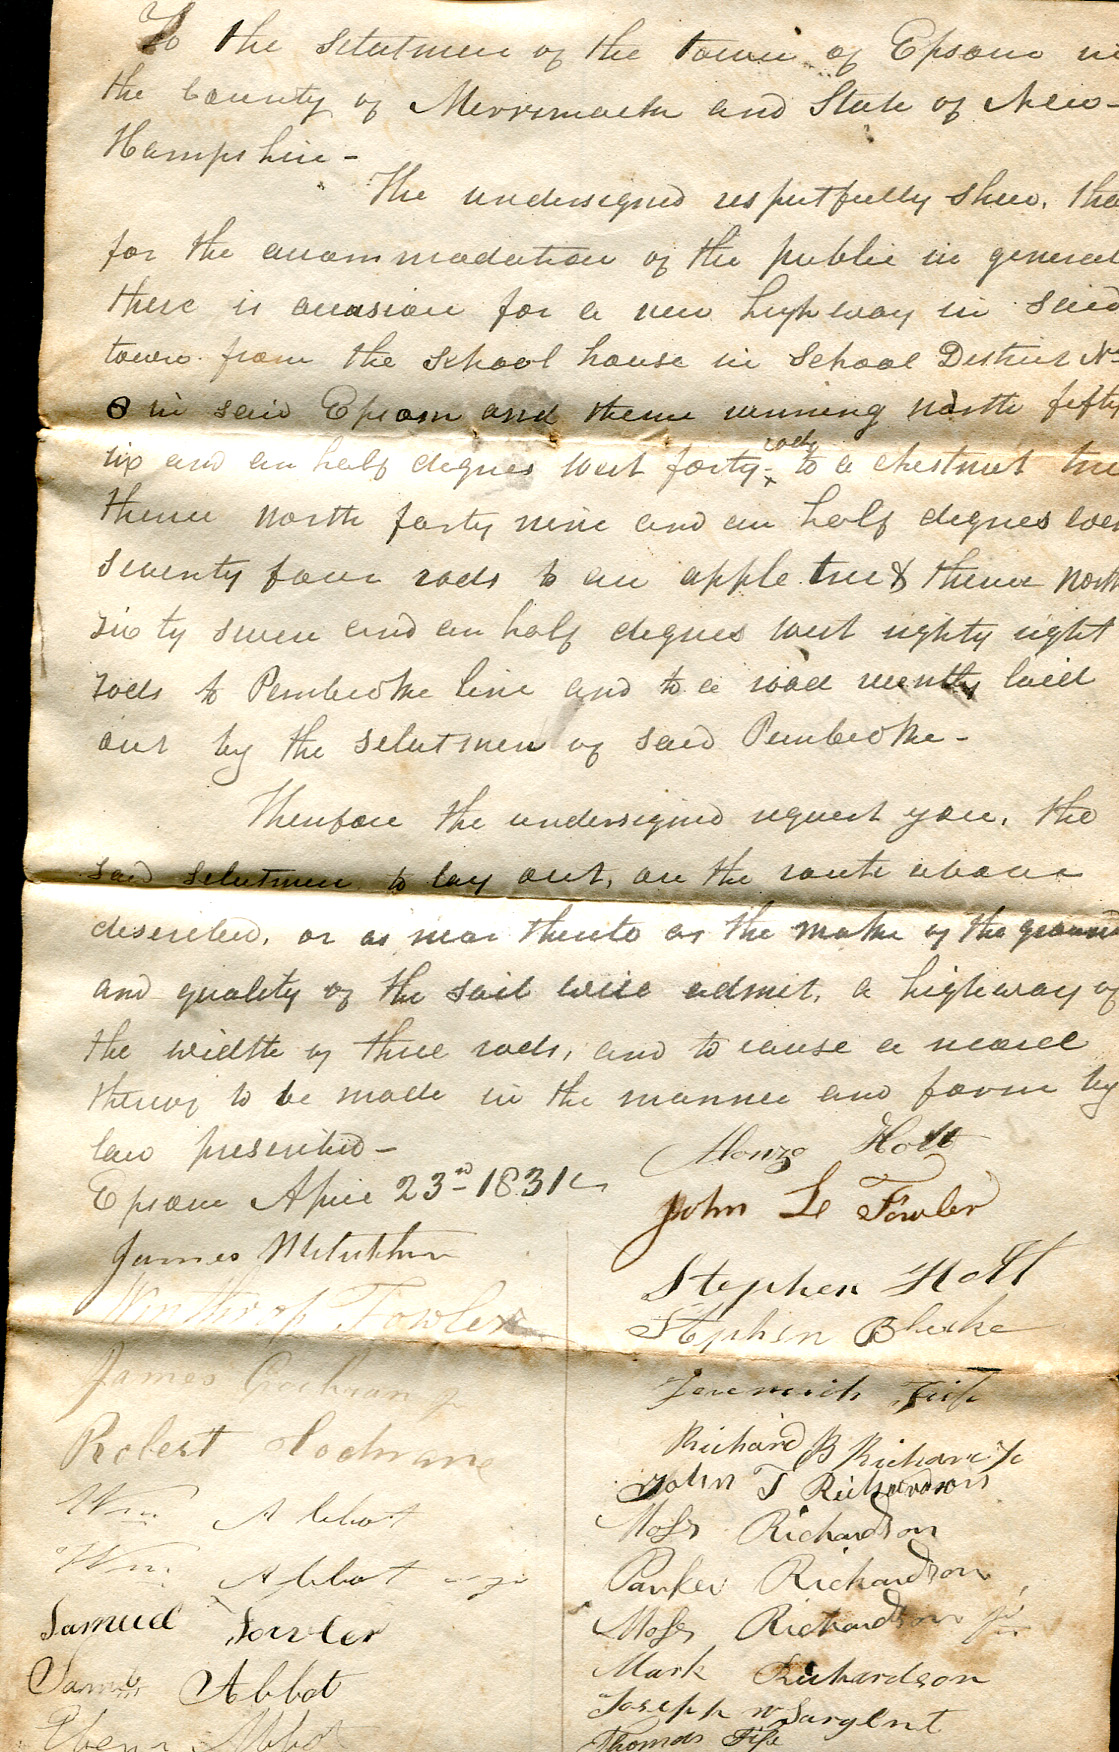 To the Selectmen of the town of Epsom in
the County of Merrimack and State of New-
Hampshire -
The undersigned respectfully shew, tha
for the accommodation of the public in general
there is occasion for a new highway in said
town from the School house in School District No
8 in said Epsom and thence running north fifty
six and an half degrees west forty rods to a chestnut tree
thence north forty nine and an half degrees wes
seventy four rods to an apple tree & thence north
sixty seven and an half degrees west eighty eight
rods to Pembroke line and to a road recently laid
out by the selectmen of said Pembroke -
Therefore the undersigned request you, the
said selectmen to lay out, on the route above
described, or as near thereto as the make of the ground
and quality of the soil will admit, a highway of
the width of three rods, and to cause a record
thereof to be made in the manner and form by
law prescribed -
Epsom April 23rd 1831
Alonzo Holt
John L Fowler
Stephen Holt
Stephen Bleake
Jeremiah Fisk
Richard B Richard
John T Richardson
Moses Richardson
Parker Richardson
Moses Richardson jr
Mark Richardson
Joseph W Sargent
Thomas Fisk
James McCutchen
Winthrop Fowler
James Cochran jr
Robert Cochrane
Wm Abbot
Wm Abbot
Samuel Fowler
Saml Abbot
Eben Abbot